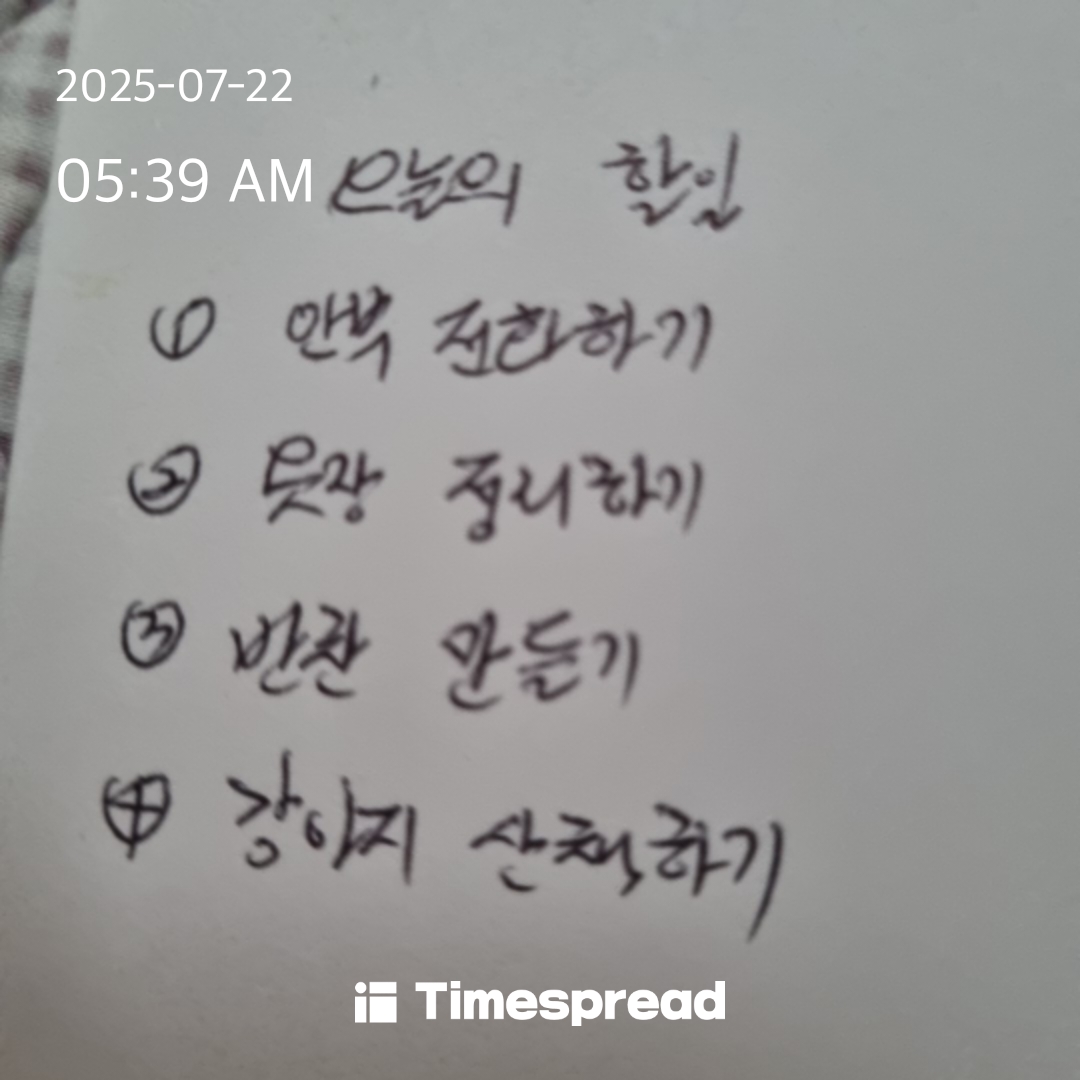 2025-07-22
05:39 AM
오늘의 할일
① 안부 전화하기
② 옷장 정리하기
③ 반찬 만들기
④ 강아지 산책하기
Timespread